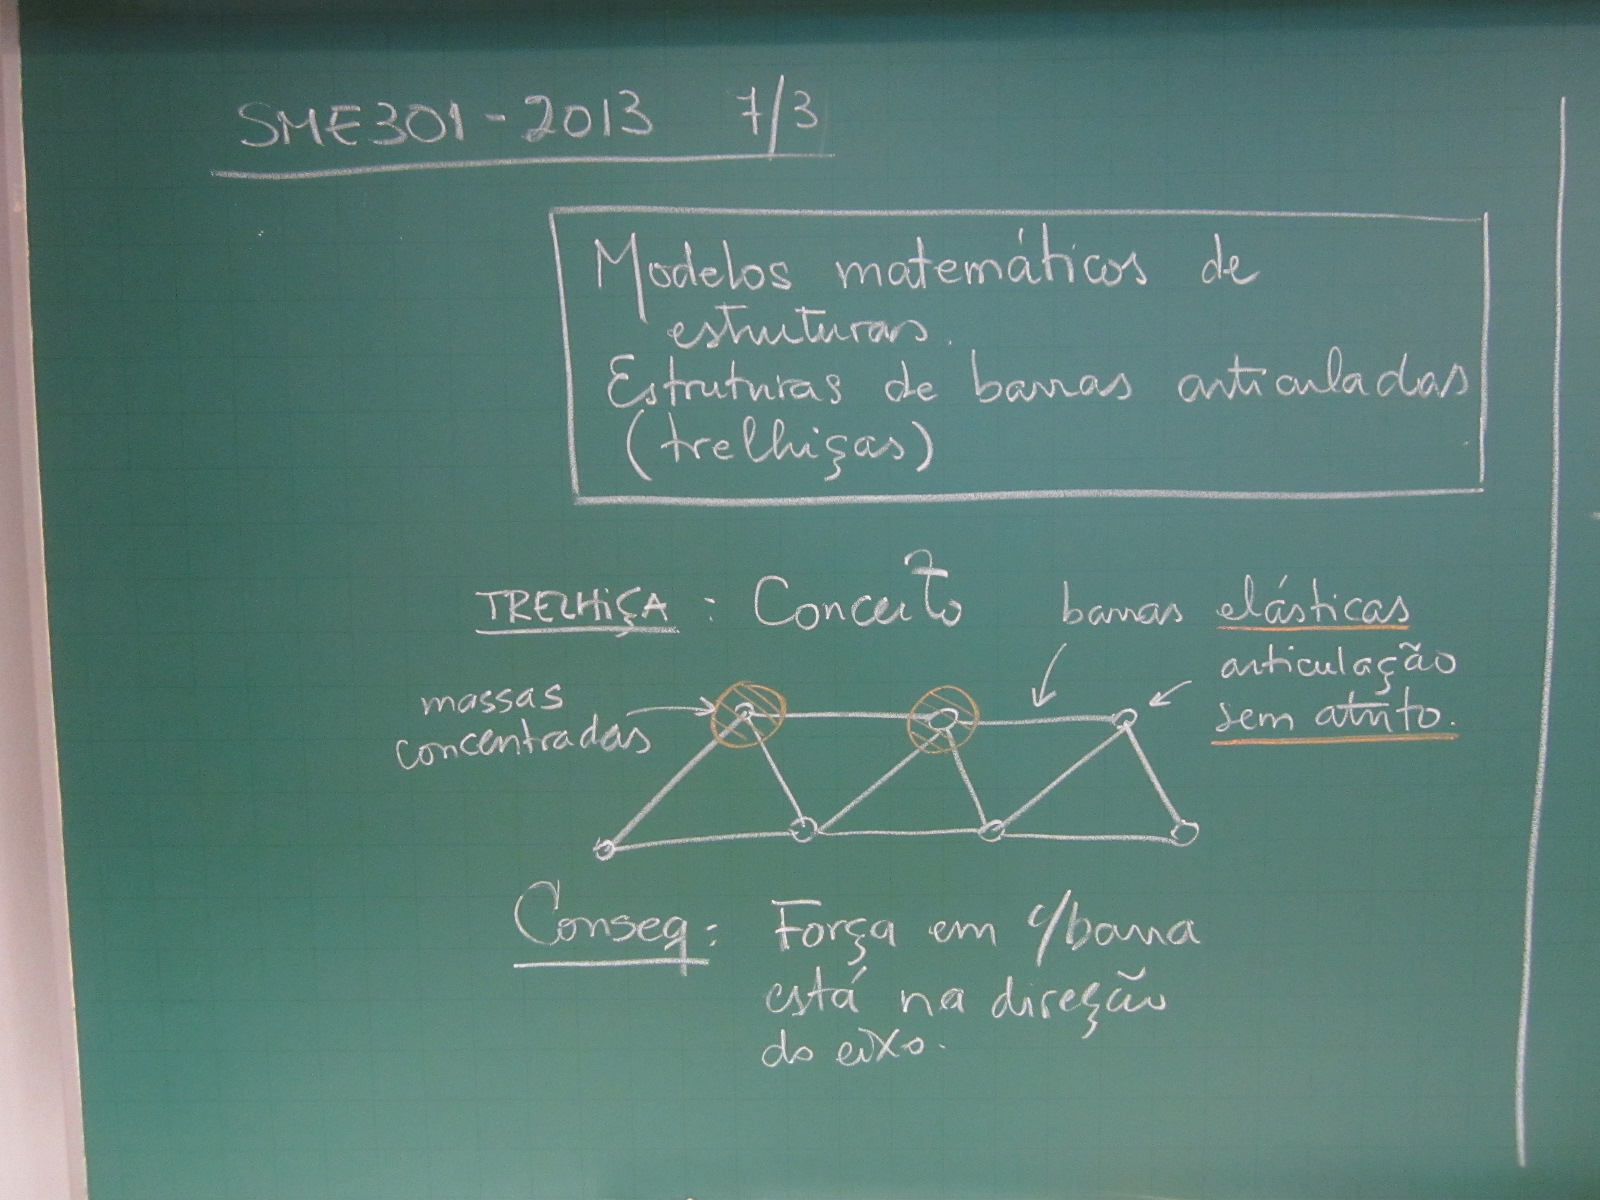 SME301-2013 7/3
Modelos matemáticos de
estruturas.
Estruturas de barras articuladas
(trelhiças)
TRELHIÇA: Conceito
barras elásticas
articulação
sem atrito.
massas
concentradas
Conseq: Força em c/barra
está na direção
do eixo.